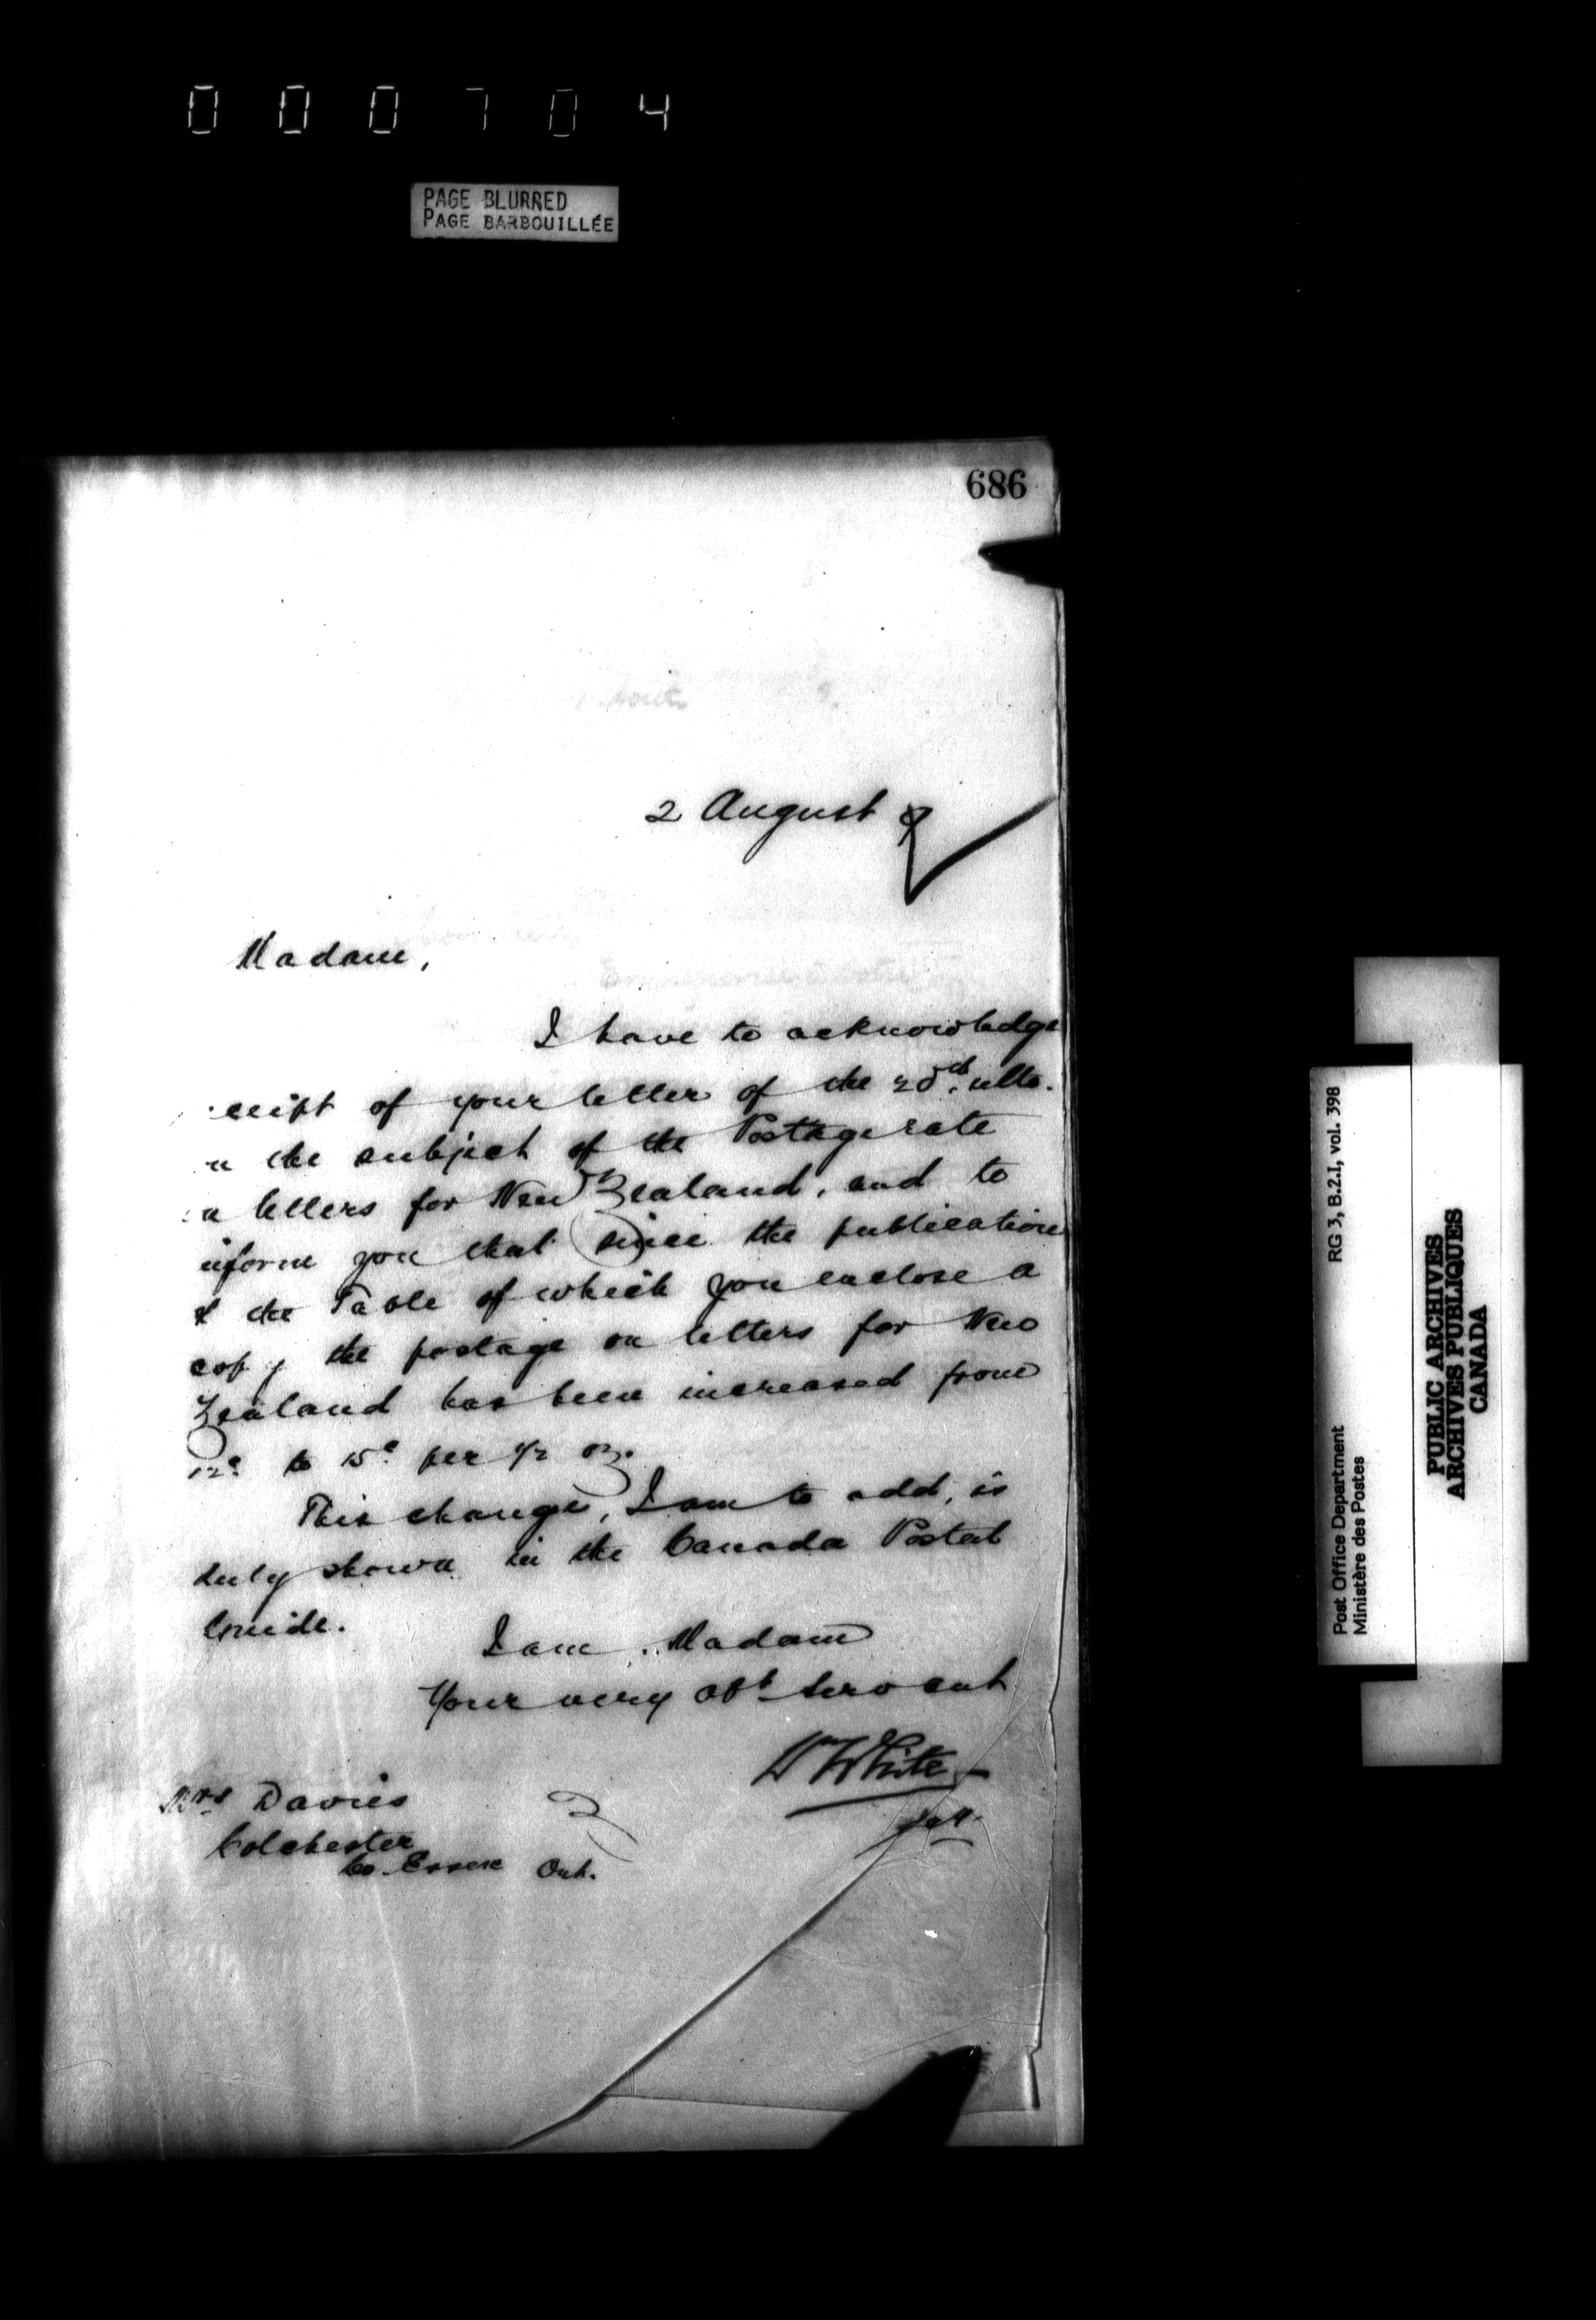 000704
PAGE BLURRED
PAGE BARBOUILLÉE
686
2 August
Madam,
I have to acknowledge
ceipt of your letter of the ulto.
the subject of the Postage rate
letters for New Zealand, and to
inform you that since the publication
the Table of which you enclose a
copy the postage on letters for New
Zealand has been increased from
12c to 15c per 1/2 oz.
This change, I am to add, is
duly shown in the Canada Postal
Guide.
I am, Madam
Your very obt servant
Wm White
Mrs Davies
Colchester
Co. Essex Ont.
Post Office Department RG 3, B.2.I, vol. 398
Ministère des Postes
PUBLIC ARCHIVES
ARCHIVES PUBLIQUES
CANADA